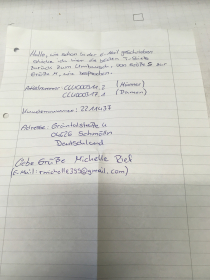 Hallo, wie schon in der E-Mail geschrieben
schicke ich Ihnen die beiden T-Shirts
zurück zum Umtausch. Von Größe S zur
Größe M, wie besprochen.
Artikelnummer: (Männer)
(Damen)
Kundennummer: 2211433
Adresse: Grüntalstraße 4
04626 Schmölln
Deutschland
Liebe Grüße Michelle Rief
(E-Mail: rmichelle393@gmail.com)